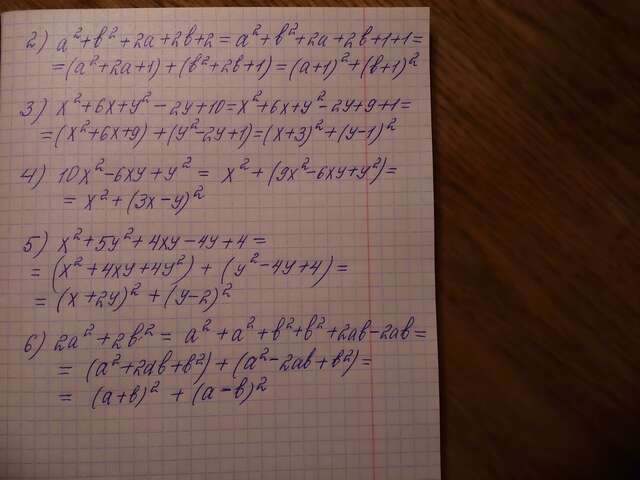 2) a² + b² + 2a + 2b + 2 = a² + b² + 2a + 2b + 1 + 1 =
= (a² + 2a + 1) + (b² + 2b + 1) = (a+1)² + (b+1)²
3) x² + 6x + y² - 2y + 10 = x² + 6x + y² - 2y + 9 + 1 =
= (x² + 6x + 9) + (y² - 2y + 1) = (x+3)² + (y-1)²
4) 10x² - 6xy + y² = x² + (9x² - 6xy + y²) =
= x² + (3x - y)²
5) x² + 5y² + 4xy - 4y + 4 =
= (x² + 4xy + 4y²) + (y² - 4y + 4) =
= (x + 2y)² + (y - 2)²
6) 2a² + 2b² = a² + a² + b² + b² + 2ab - 2ab =
= (a² + 2ab + b²) + (a² - 2ab + b²) =
= (a+b)² + (a-b)²